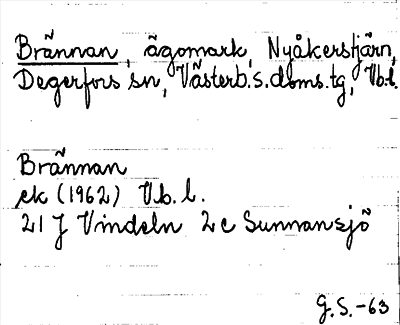 Brännan, ägomark, Nyåkerstjärn,
Degerfors sn, Västerb.s.doms.tg, Vb.l.
Brännan
ek (1962) Vb.l.
21 J Vindeln 2 c Sunnansjö
G.S.-63